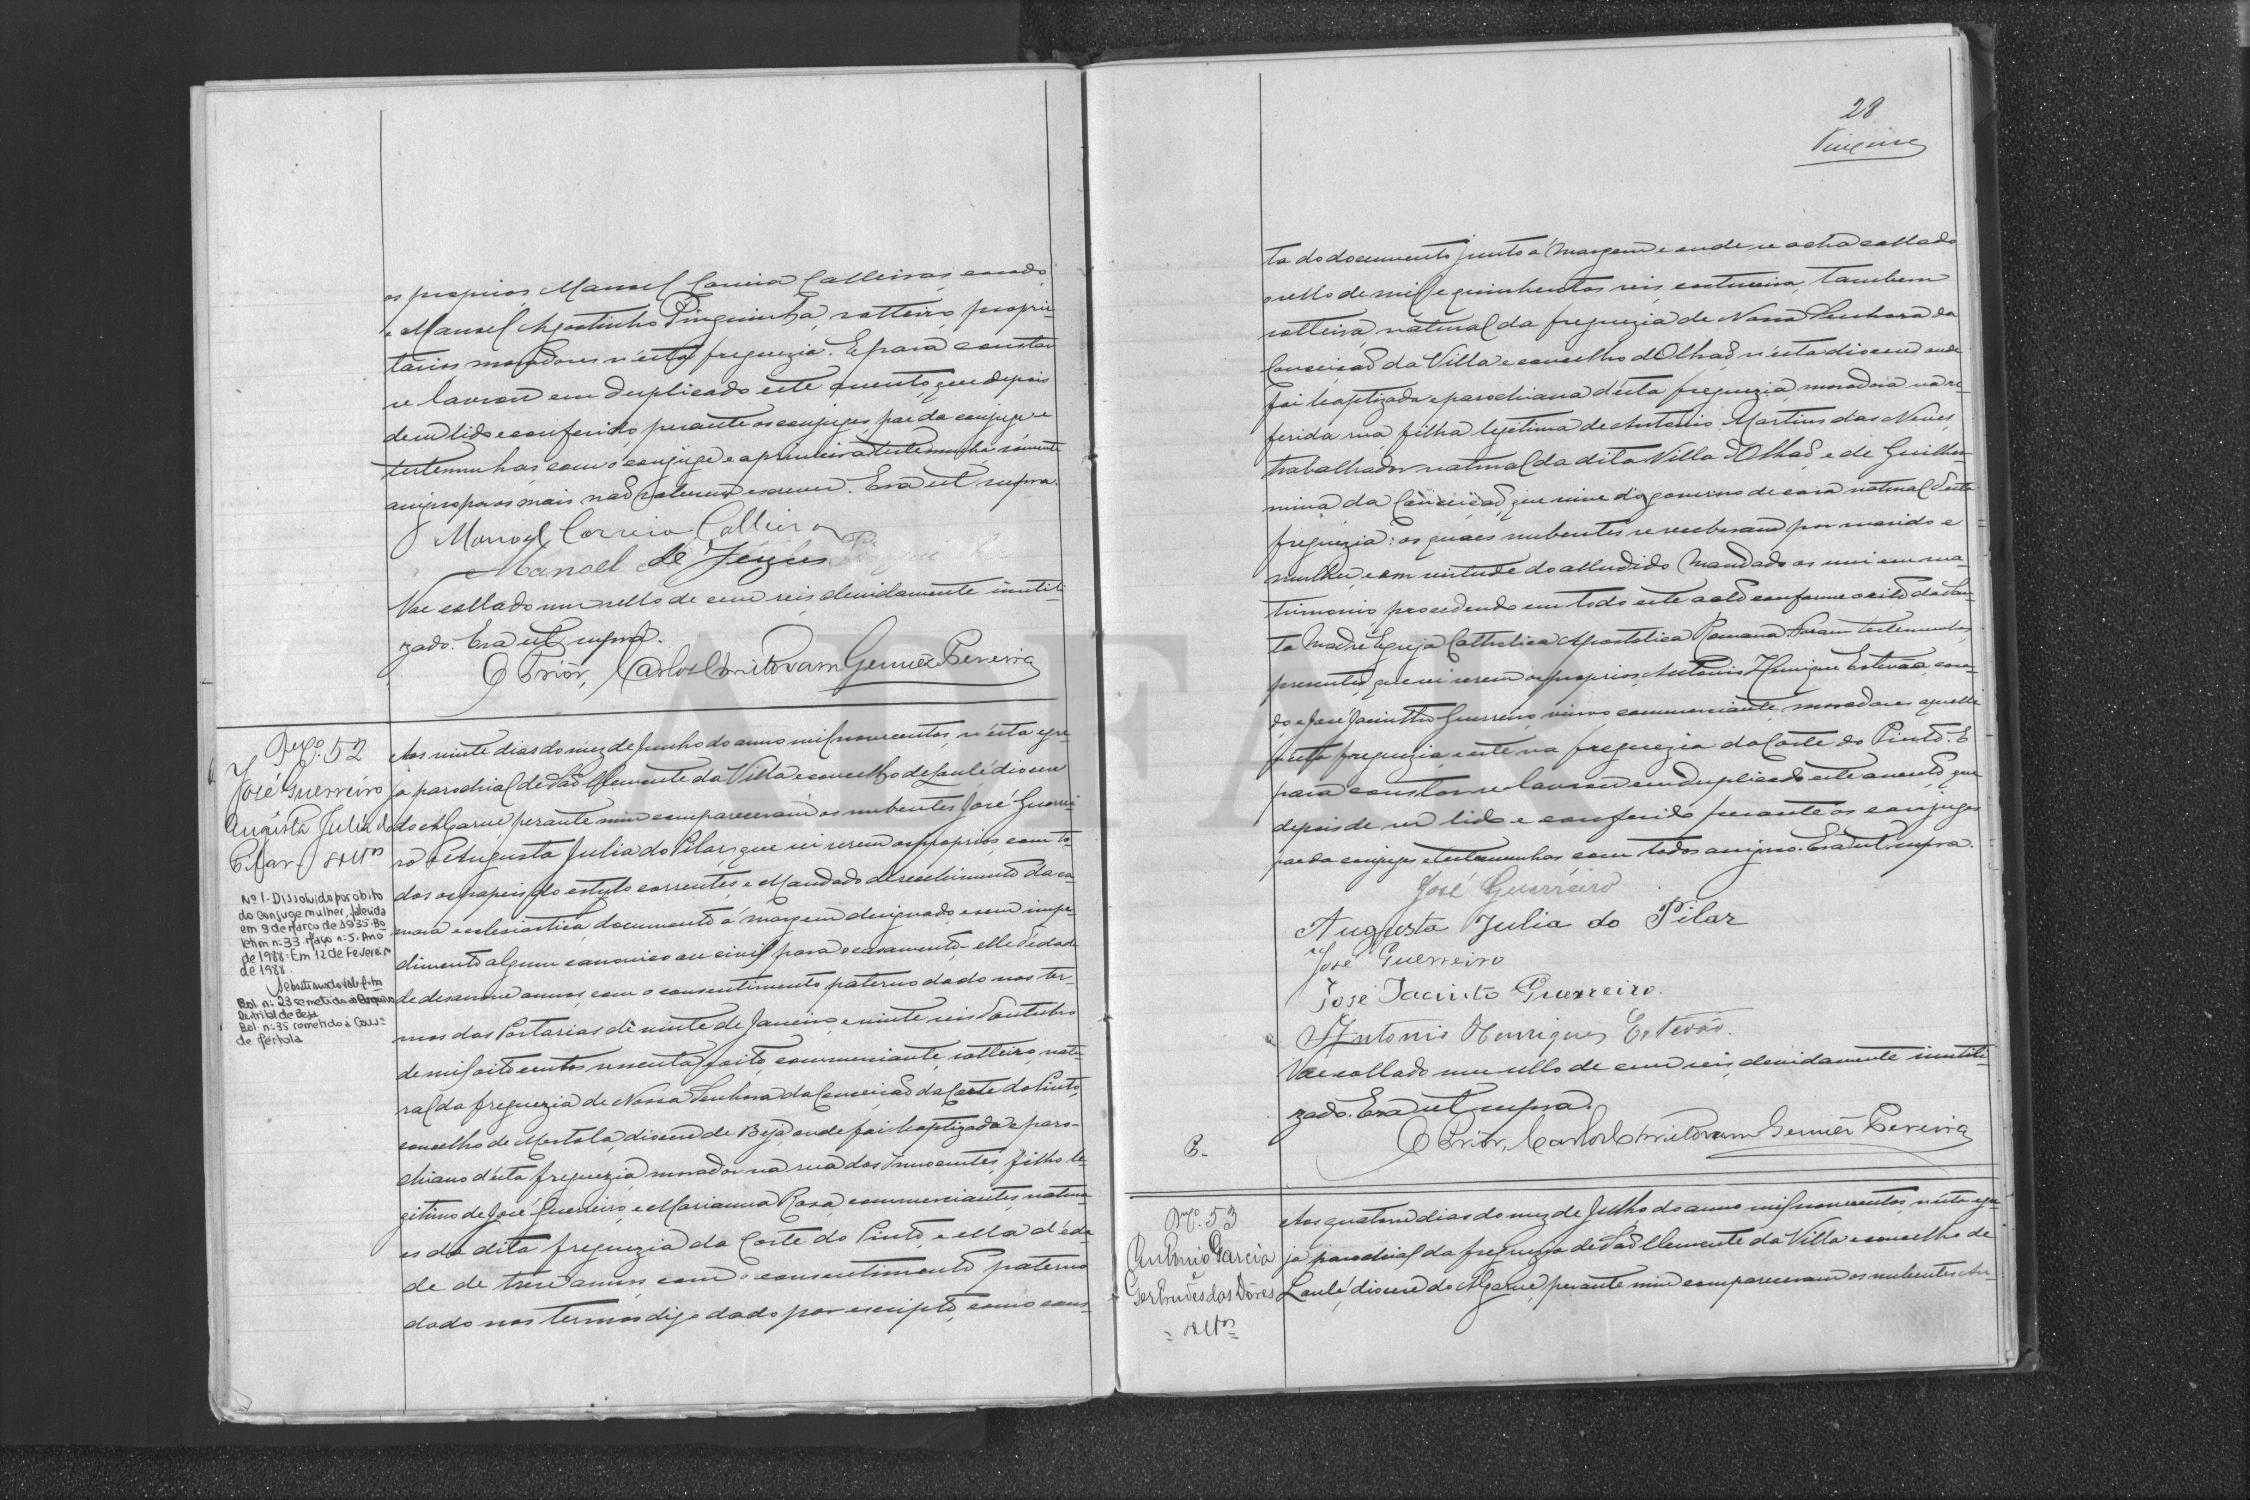 os proprios Manoel Correia Calleiras, casado,
e Manoel Agostinho Pinguinha, solteiro, proprie-
tarios moradores n'esta freguezia. E para constar
se lavrou em duplicado este assento, que depois
de ser lido e conferido perante os conjuges, pae da conjuge e
testemunhas, com o conjuge e a primeira testemunha sómente
assigno por os mais não saberem escrever. Era ut supra.
Manoel Correia Calleiras
Manoel de Jezus
Vae collado um sello de cem reis, devidamente inutili-
zado. Era ut supra.
O Prior, Carlos Christovam Genuez Pereira
Reg.º 52
José Guerreiro
Augusta Julia do
Pilar soltros
Nº 1 - Dissolvido por obito
do conjuge mulher, falecida
em 9 de Março de 1935. Bo
letim n.º 33 Maço n.º 5. Ano
de 1988. Em 12 de Fevereiro
de 1988.
Bol. n.º 23 remetido á Conserv.
Distrital de Beja
Bol. n.º 35 remetido á Cons.
de Mértola
Aos vinte dias do mez de Junho do anno mil novecentos, n'esta egre-
ja parochial de São Clemente da Villa e concelho de Loulé, diocese
do Algarve perante mim compareceram os nubentes José Guerrei-
ro e Augusta Julia do Pilar, que sei serem os proprios, com to-
dos os papeis do estylo correntes, e Mandado de recebimento da ca-
mara ecclesiastica, documento á margem designado e sem impe-
dimento algum canonico ou civil para o casamento - elle d'edade
de desanove annos, com o consentimento paterno dado nos ter-
mos das Portarias de vinte de Janeiro e vinte seis d'outubro
de mil oito centos sessenta e oito, commerciante, solteiro, natu-
ral da freguezia de Nossa Senhora da Conceição da Corte do Pinto,
concelho de Mertola, diocese de Beja onde foi baptizado e paro-
chiano d'esta freguezia morador na rua dos Innocentes, filho le-
gitimo de José Guerreiro, e Marianna Rosa, commerciantes, natura-
es da dita freguezia da Corte do Pinto, e ella d'eda-
de de trese annos, com o consentimento paterno
dado nos termos digo dado por escripto, como cons-
28
ta do documento junto á margem e onde se acha collado
o sello de mil e quinhentos reis, costureira, tambem
solteira, natural da freguezia de Nossa Senhora da
Conceição da Villa e concelho d'Olhão, n'esta diocese onde
foi baptizada e parochiana d'esta freguezia, moradora na re-
ferida rua, filha legitima de Antonio Martins das Neves,
trabalhador, natural da dita Villa d'Olhão, e de Guilher-
mina da Conceição, que vive do governo de casa natural d'esta
freguezia: os quaes nubentes se receberam por marido e
mulher, e em virtude do alludido Mandado os uni em ma-
trimonio, procedendo em todo este acto conforme o rito da San-
ta Madre Egreja Catholica Apostolica Romana. Foram testemunhas
presentes, que sei serem os proprios, Antonio Henrique Estevão, casa-
do, e José Jacintho Guerreiro, viuvo commerciante, moradores aquelle
n'esta freguezia, e este na freguezia da Corte do Pinto. E
para constar se lavrou em duplicado este assento, que
depois de ser lido e conferido perante os conjuges
pae da conjuge e testemunhas com todos assigno. Era ut supra.
José Guerreiro
Augusta Julia do Pilar
José Guerreiro
José Jacinto Guerreiro.
Antonio Henrique Estevão.
Vae collado um sello de cem reis, devidamente inutili-
zado. Era ut supra.
O Prior, Carlos Christovam Genuez Pereira
Reg.º 53
Antonio Garcia
e
Gertrudes das Dores
= soltros =
Aos quatorze dias do mez de Julho do anno mil novecentos, n'esta egre-
ja parochial da freguezia de São Clemente da Villa e concelho de
Loulé, diocese do Algarve, perante mim compareceram os nubentes An-